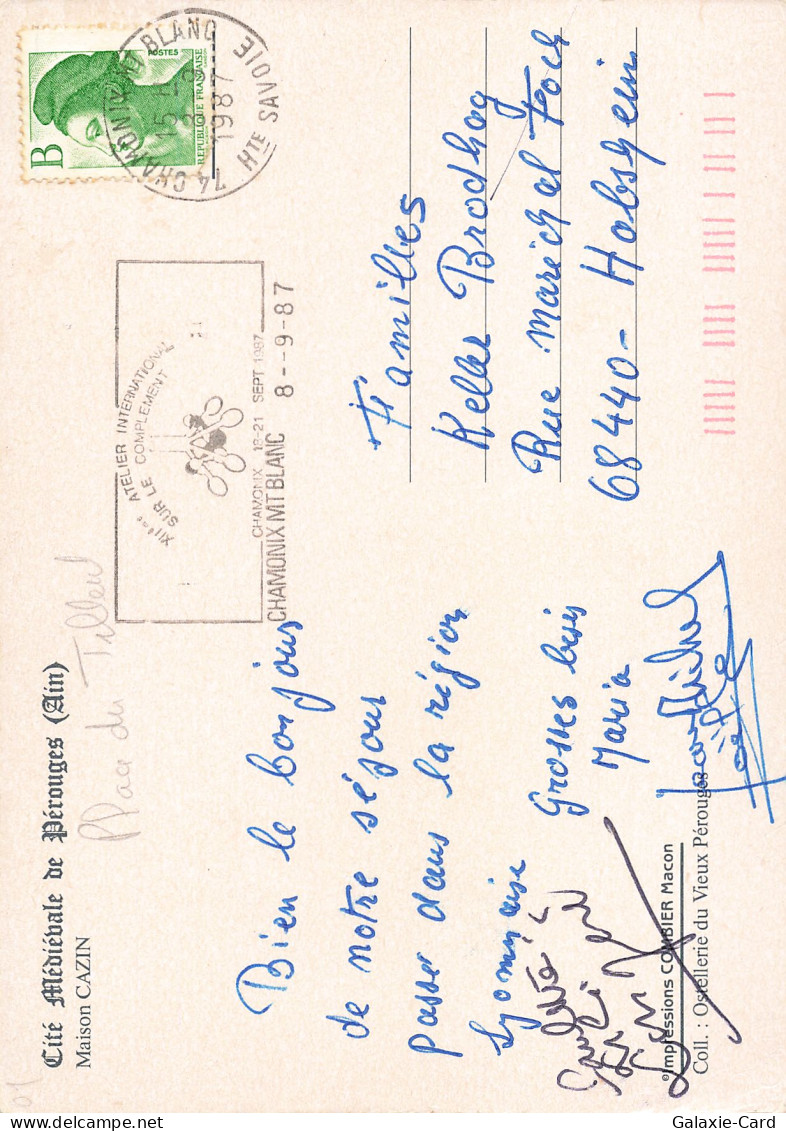 Cité Médiévale de Pérouges (Ain)
Maison CAZIN
Place du Tilleul
Bien le bonjour
de notre séjour
passer dans la région
Lyonnaise
Grosses bises
Maria
Jean Michel
XIIème ATELIER INTERNATIONAL
SUR LE COMPLEMENT
CHAMONIX 18-21 SEPT 1987
CHAMONIX MT BLANC 8--9-87
74 CHAMONIX MT BLANC
15 H
8-9
1987
HTE SAVOIE
B
POSTES
REPUBLIQUE FRANÇAISE
Familles
Keller Brodhag
Rue Maréchal Foch
68440 - Habsheim
© Impressions COMBIER Macon
Coll. : Ostellerie du Vieux Pérouges
01
Galaxie-Card